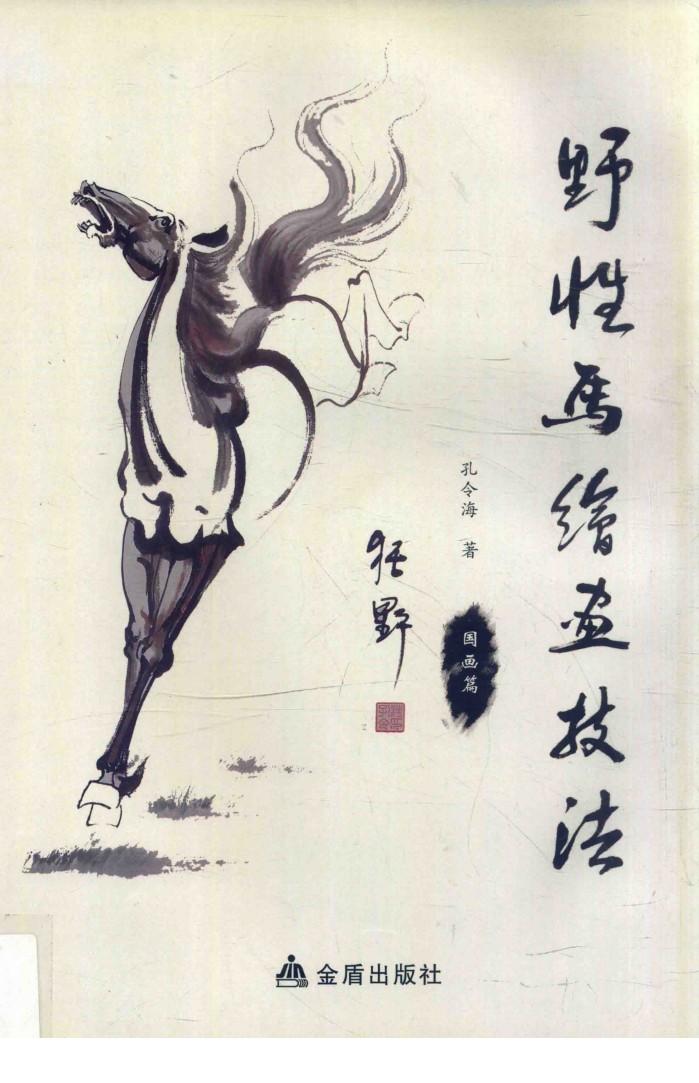 野性馬繪画技法
孔令海 著
国画篇
狂野
金盾出版社